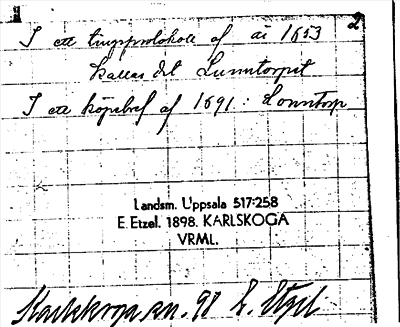 2
I ett tingsprotokoll af år 1653
kallas det Lunntorpet
I ett köpebref af 1691: Lonntorp
Landsm. Uppsala 517:258
E. Etzel. 1898. KARLSKOGA
VRML.
Karlskoga sn. 98 E. Etzel